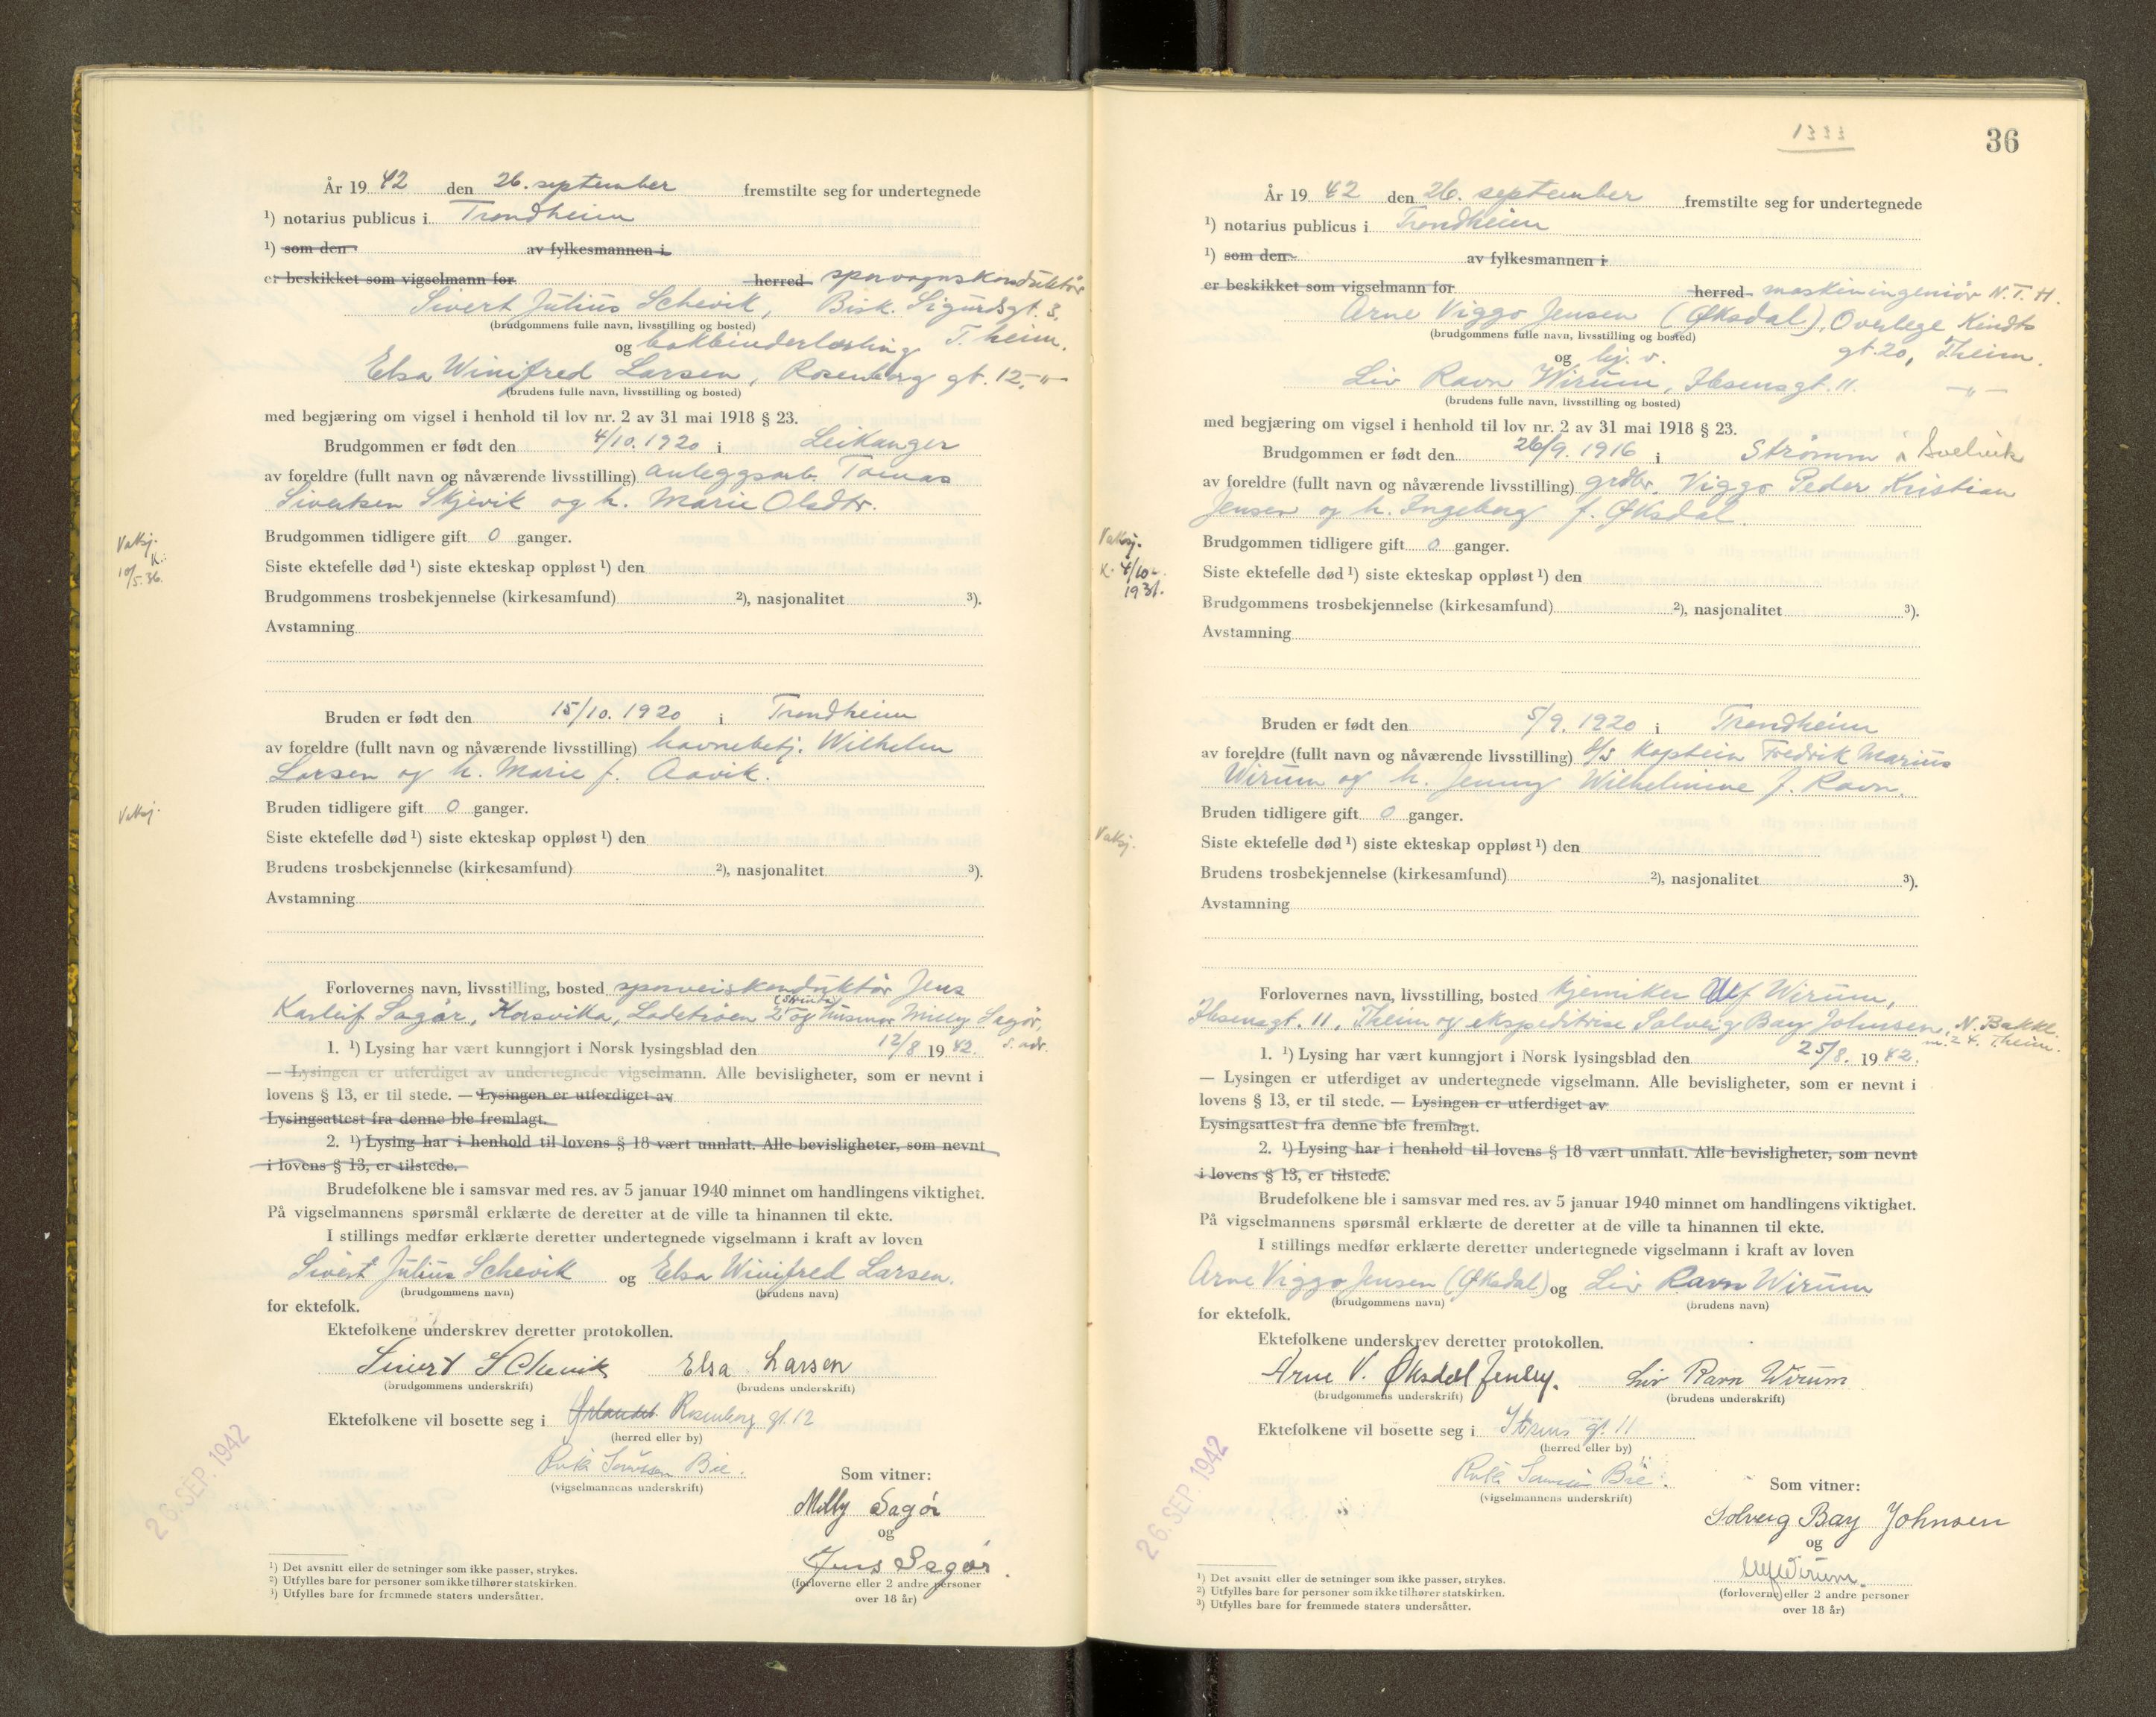 År 19 42 den 26. september fremstilte seg for undertegnede
¹) notarius publicus i Trondheim
¹) som den av fylkesmannen i
er beskikket som vigselmann for herred sporvognskonduktör
Sivert Julius Schevik, Bisk. Sigurdsgt. 3,
(brudgommens fulle navn, livsstilling og bosted)
og bokbinderlærling T.heim.
Elsa Winifred Larsen, Rosenborg gt. 12, -"-
(brudens fulle navn, livsstilling og bosted)
med begjæring om vigsel i henhold til lov nr. 2 av 31 mai 1918 § 23.
Brudgommen er født den 4/10. 1920 i Leikanger
av foreldre (fullt navn og nåværende livsstilling) anleggsarb. Tomas
Sivertsen Skjevik og h. Marie Olsdtr.
Vaksj.
K.:
10/5.36.
Brudgommen tidligere gift 0 ganger.
Siste ektefelle død ¹) siste ekteskap oppløst ¹) den
Brudgommens trosbekjennelse (kirkesamfund) ²), nasjonalitet ³).
Avstamning
Bruden er født den 15/10. 1920 i Trondheim
av foreldre (fullt navn og nåværende livsstilling) havnebetj. Wilhelm
Larsen og h. Marie f. Aavik.
Vaksj.
Bruden tidligere gift 0 ganger.
Siste ektefelle død ¹) siste ekteskap oppløst ¹) den
Brudens trosbekjennelse (kirkesamfund) ²), nasjonalitet ³).
Avstamning
Forlovernes navn, livsstilling, bosted sporveiskonduktör Jens
Karleif Sagør, Korsvika, Ladetroen 2 (Strinda) og husmor Milly Sagør,
s. adr.
1. ¹) Lysing har vært kunngjort i Norsk lysingsblad den 12/8 19 42.
— Lysingen er utferdiget av undertegnede vigselmann. Alle bevisligheter, som er nevnt i
lovens § 13, er til stede. — Lysingen er utferdiget av
Lysingsattest fra denne ble fremlagt.
2. ¹) Lysing har i henhold til lovens § 18 vært unnlatt. Alle bevisligheter, som nevnt
i lovens § 13, er tilstede.
Brudefolkene ble i samsvar med res. av 5 januar 1940 minnet om handlingens viktighet.
På vigselmannens spørsmål erklærte de deretter at de ville ta hinannen til ekte.
I stillings medfør erklærte deretter undertegnede vigselmann i kraft av loven
Sivert Julius Schevik og Elsa Winifred Larsen.
(brudgommens navn) (brudens navn)
for ektefolk.
Ektefolkene underskrev deretter protokollen.
Sivert Schevik Elsa Larsen
(brudgommens underskrift) (brudens underskrift)
Ektefolkene vil bosette seg i Ørlandet Rosenborg gt. 12
(herred eller by)
(vigselmannens underskrift)
26. SEP. 1942
Som vitner:
Milly Sagør
og
Jens Sagør.
(forloverne eller 2 andre personer
over 18 år)
¹) Det avsnitt eller de setninger som ikke passer, strykes.
²) Utfylles bare for personer som ikke tilhører statskirken.
³) Utfylles bare for fremmede staters undersåtter.
1333
36
År 19 42 den 26. september fremstilte seg for undertegnede
¹) notarius publicus i Trondheim
¹) som den av fylkesmannen i
er beskikket som vigselmann for herred maskiningeniör N.T.H.
Arne Viggo Jensen (Øksdal), Overlege Kindts
(brudgommens fulle navn, livsstilling og bosted)
og hj. v. gt. 20, T.heim.
Liv Ravn Wirum, Ibsensgt. 11. -"-
(brudens fulle navn, livsstilling og bosted)
med begjæring om vigsel i henhold til lov nr. 2 av 31 mai 1918 § 23.
Brudgommen er født den 26/9. 1916 i Strömm i Svelvik
av foreldre (fullt navn og nåværende livsstilling) grdbr. Viggo Peder Kristian
Jensen og h. Ingeborg f. Øksdal.
Vaksj.
K. 4/10-
1931.
Brudgommen tidligere gift 0 ganger.
Siste ektefelle død ¹) siste ekteskap oppløst ¹) den
Brudgommens trosbekjennelse (kirkesamfund) ²), nasjonalitet ³).
Avstamning
Bruden er født den 5/9. 1920 i Trondheim
av foreldre (fullt navn og nåværende livsstilling) d/s kaptein Fredrik Marius
Wirum og h. Jenny Wilhelmine f. Ravn.
Vaksj.
Bruden tidligere gift 0 ganger.
Siste ektefelle død ¹) siste ekteskap oppløst ¹) den
Brudens trosbekjennelse (kirkesamfund) ²), nasjonalitet ³).
Avstamning
Forlovernes navn, livsstilling, bosted kjemiker Ulf Wirum,
Ibsensgt. 11, T.heim og ekspeditrise Solveig Bay Johnsen, N. Bakkl.
nr. 24. T.heim.
1. ¹) Lysing har vært kunngjort i Norsk lysingsblad den 25/8. 19 42.
— Lysingen er utferdiget av undertegnede vigselmann. Alle bevisligheter, som er nevnt i
lovens § 13, er til stede. — Lysingen er utferdiget av
Lysingsattest fra denne ble fremlagt.
2. ¹) Lysing har i henhold til lovens § 18 vært unnlatt. Alle bevisligheter, som nevnt
i lovens § 13, er tilstede.
Brudefolkene ble i samsvar med res. av 5 januar 1940 minnet om handlingens viktighet.
På vigselmannens spørsmål erklærte de deretter at de ville ta hinannen til ekte.
I stillings medfør erklærte deretter undertegnede vigselmann i kraft av loven
Arne Viggo Jensen (Øksdal) og Liv Ravn Wirum
(brudgommens navn) (brudens navn)
for ektefolk.
Ektefolkene underskrev deretter protokollen.
Arne V. Øksdal Jensen. Liv Ravn Wirum
(brudgommens underskrift) (brudens underskrift)
Ektefolkene vil bosette seg i Ibsens gt. 11
(herred eller by)
(vigselmannens underskrift)
26. SEP. 1942
Som vitner:
Solveig Bay Johnsen
og
Ulf Wirum.
(forloverne eller 2 andre personer
over 18 år)
¹) Det avsnitt eller de setninger som ikke passer, strykes.
²) Utfylles bare for personer som ikke tilhører statskirken.
³) Utfylles bare for fremmede staters undersåtter.